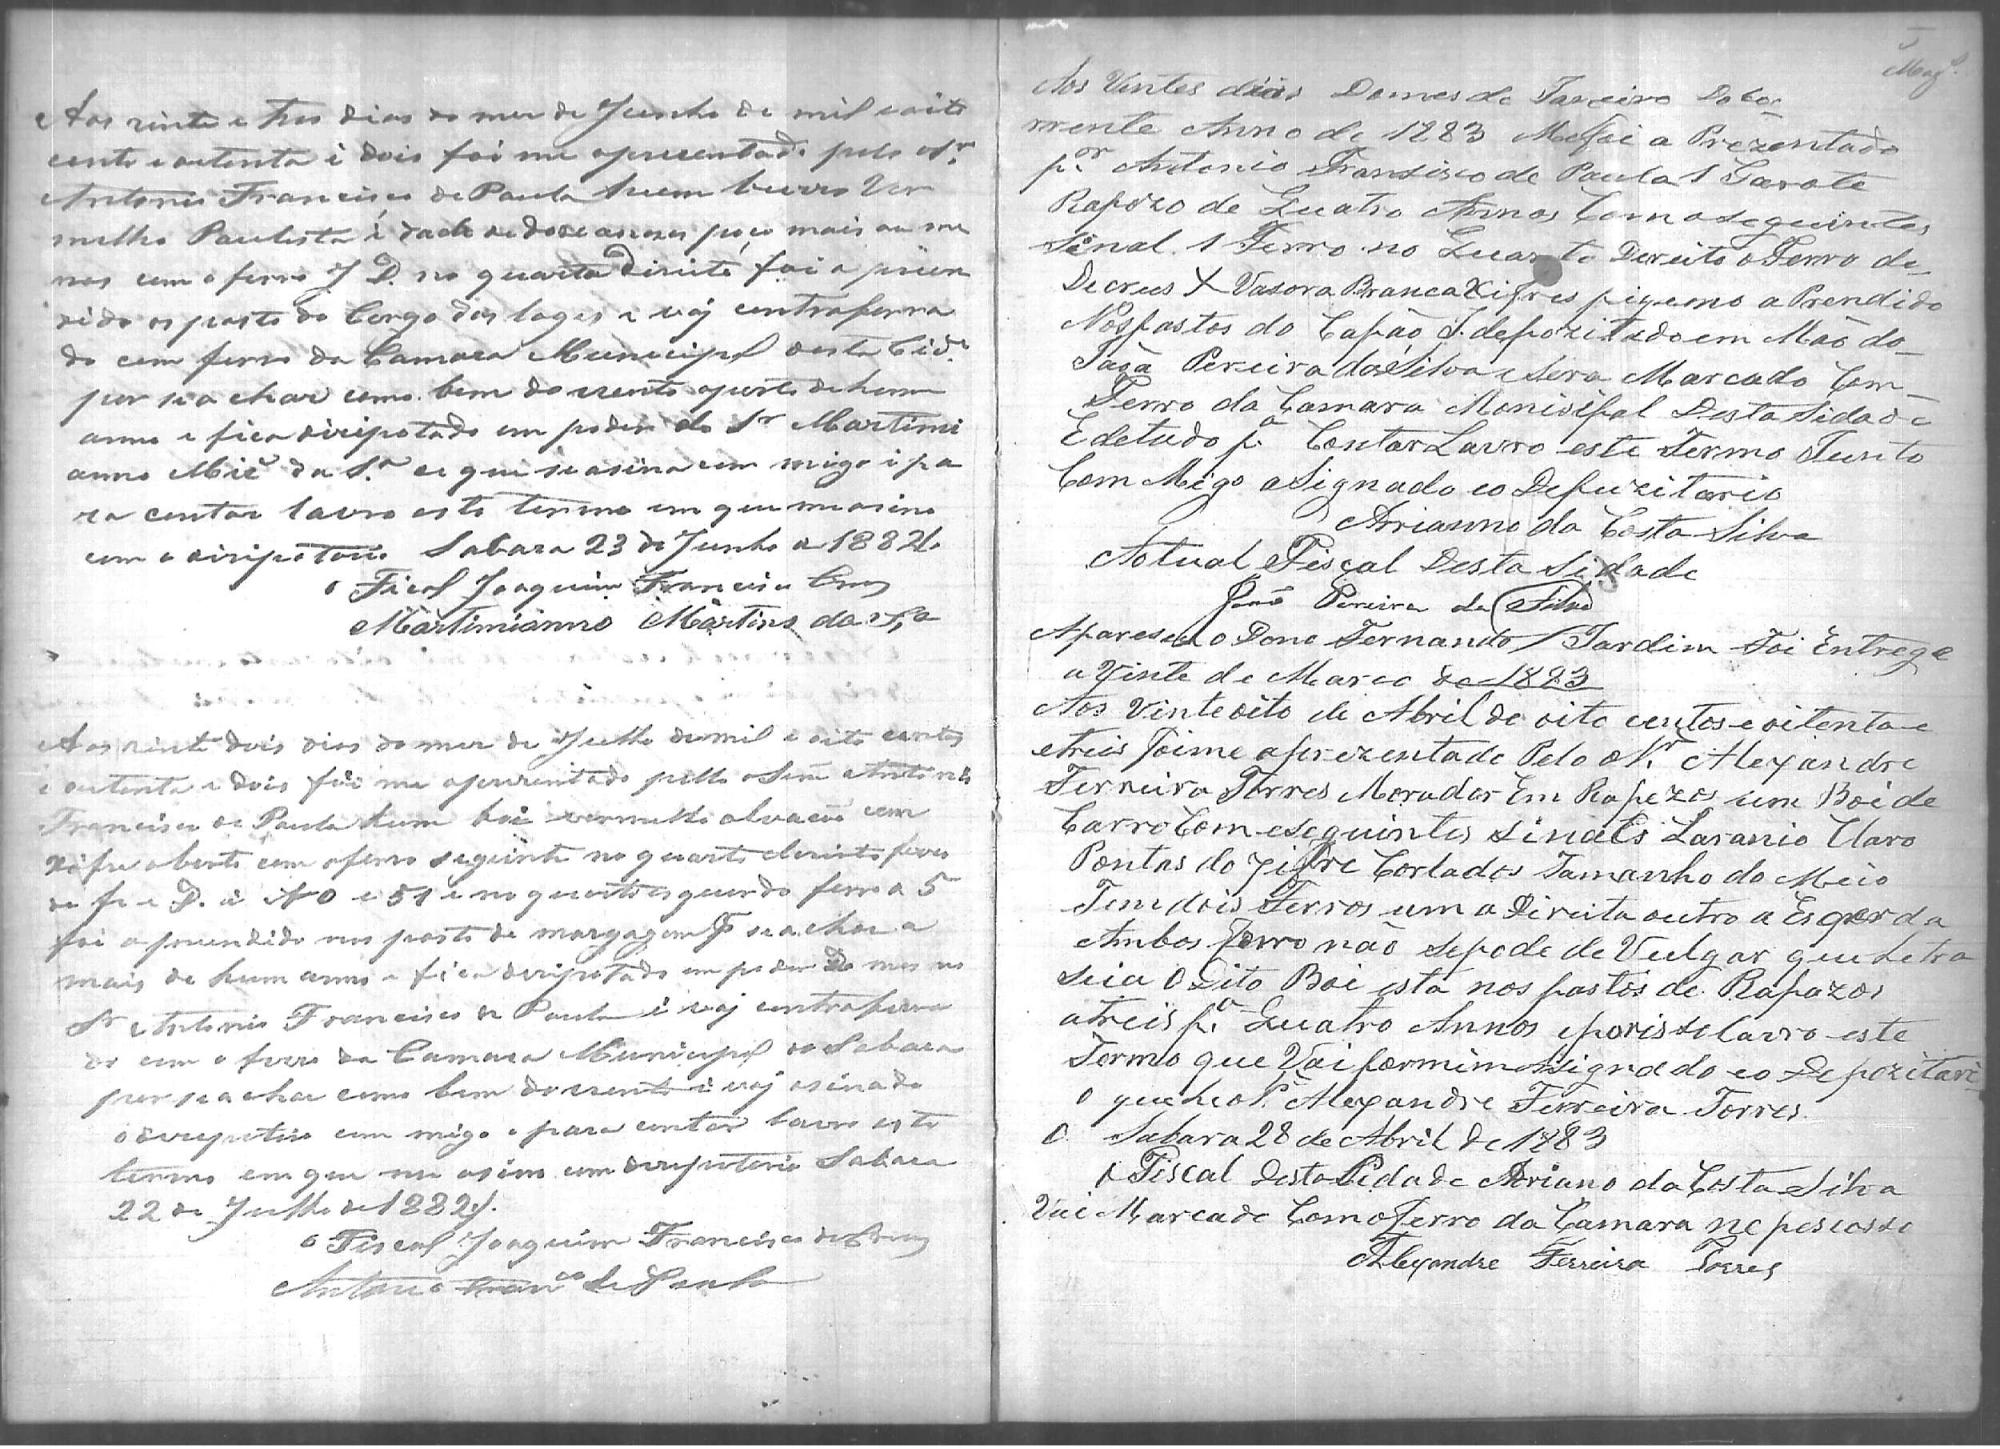 Aos vinte e tres dias do mez de Junho de mil e oito
cento e outenta i dois foi me aprisentado pelo o Sr.
Antonio Francisco de Paula hum burro Ver
melho Paulista i dade de doze annos poço mais ou me
nos com o ferro J D. no quarto direito foi a prien
dido os pasto do Corgo das lages e vaj contraferra
do com ferro da Camara Municipal desta Cid.e
por se a char como bem do vento aperto de hum
anno e fica diripotado em poder do Sr Martimi
anno Miz da S.a e que se asina com migo i pa
ra contar lavro este termo em que me asino
com o diripotario Sabara 23 de Junho de 1882.
o Fiscal Joaquim Francisco Cruz
Martimianno Martins da S.a
Aos vinte dois dias do mez de Julho de mil e oito centos
e outenta e dois foi me aprisentado pello o Senr Antonio
Francisco de Paula hum boi vermelho alvação com
xifre aberto com o ferro seguinte no quarto direito
de fr e D. i N O e 51 e no quarto esquerdo ferro a 5
foi a prendido nos pasto de se a char a
mais de hum anno e fica diripotado em poder do mesmo
Sr Antonio Francisco de Paula i vaj contraferra
do com o ferro da Camara Municipal de Sabara
por se a char como bem do vento i vaj asinado
o diripotario com migo e para contar lavro este
termo em que me asino com diripotario Sabara
22 de Julho de 1882.
o Fiscal Joaquim Francisco da Cruz
Antonio Franco de Paula
Aos Vintes dias Domes de Janeiro Docor
rrente Anno de 1883 Mefoi a Prezentado
p.or Antonio Fransisco de Paula 1 Garote
Rapozo de Quatro Annos Com oseguintes
Sinal. 1 Ferro no Quarto Dereito o Ferro de
Decrus X Vasora Branca Xifres piqueno a Prendido
Nospastos do Capão J. depozitado em Mão do
João Pereira da Silva e sera Marcado Com
Ferro da Camara Monisipal Desta Sidade
E detudo p.a Contar Lavro este Termo Junto
Com Migo aSignado eo Depuzitario
Arianno da Costa Silva
Actual Fiscal Desta Sidade
José Pereira da Silva
Apareseu o Dono Fernando Jardim Foi Entrege
a Vinte de Marco de 1883
Aos Vinteoito de Abril de oito centos e oitenta e
etreis foime aprezentado Pelo o Sr. Alexandre
Ferreira Torres Morador Em Rapozos um Boi de
Carro Com eseguintes Sinaes Laranio Claro
Pontas do xifre Cortados Tamanho do Meio
Tem dois Ferros um a Direita outro a Esqerda
Ambos ferro não sepode de Vulgar que Letra
seia O Dito Boi esta nos pastos de Rapozos
atreis p.a Quatro Annos eporisso Lavro este
Termo que Vai pormim aSignado eo Depozitari
o que he o Sr. Alexandre Ferreira Torres.
O Sabara 28 de Abril de 1883
o Fiscal Desta Cidade Adriano da Costa Silva
Vai Marcado Com oferro da Camara no pescosso
Alexandre Ferreira Torres